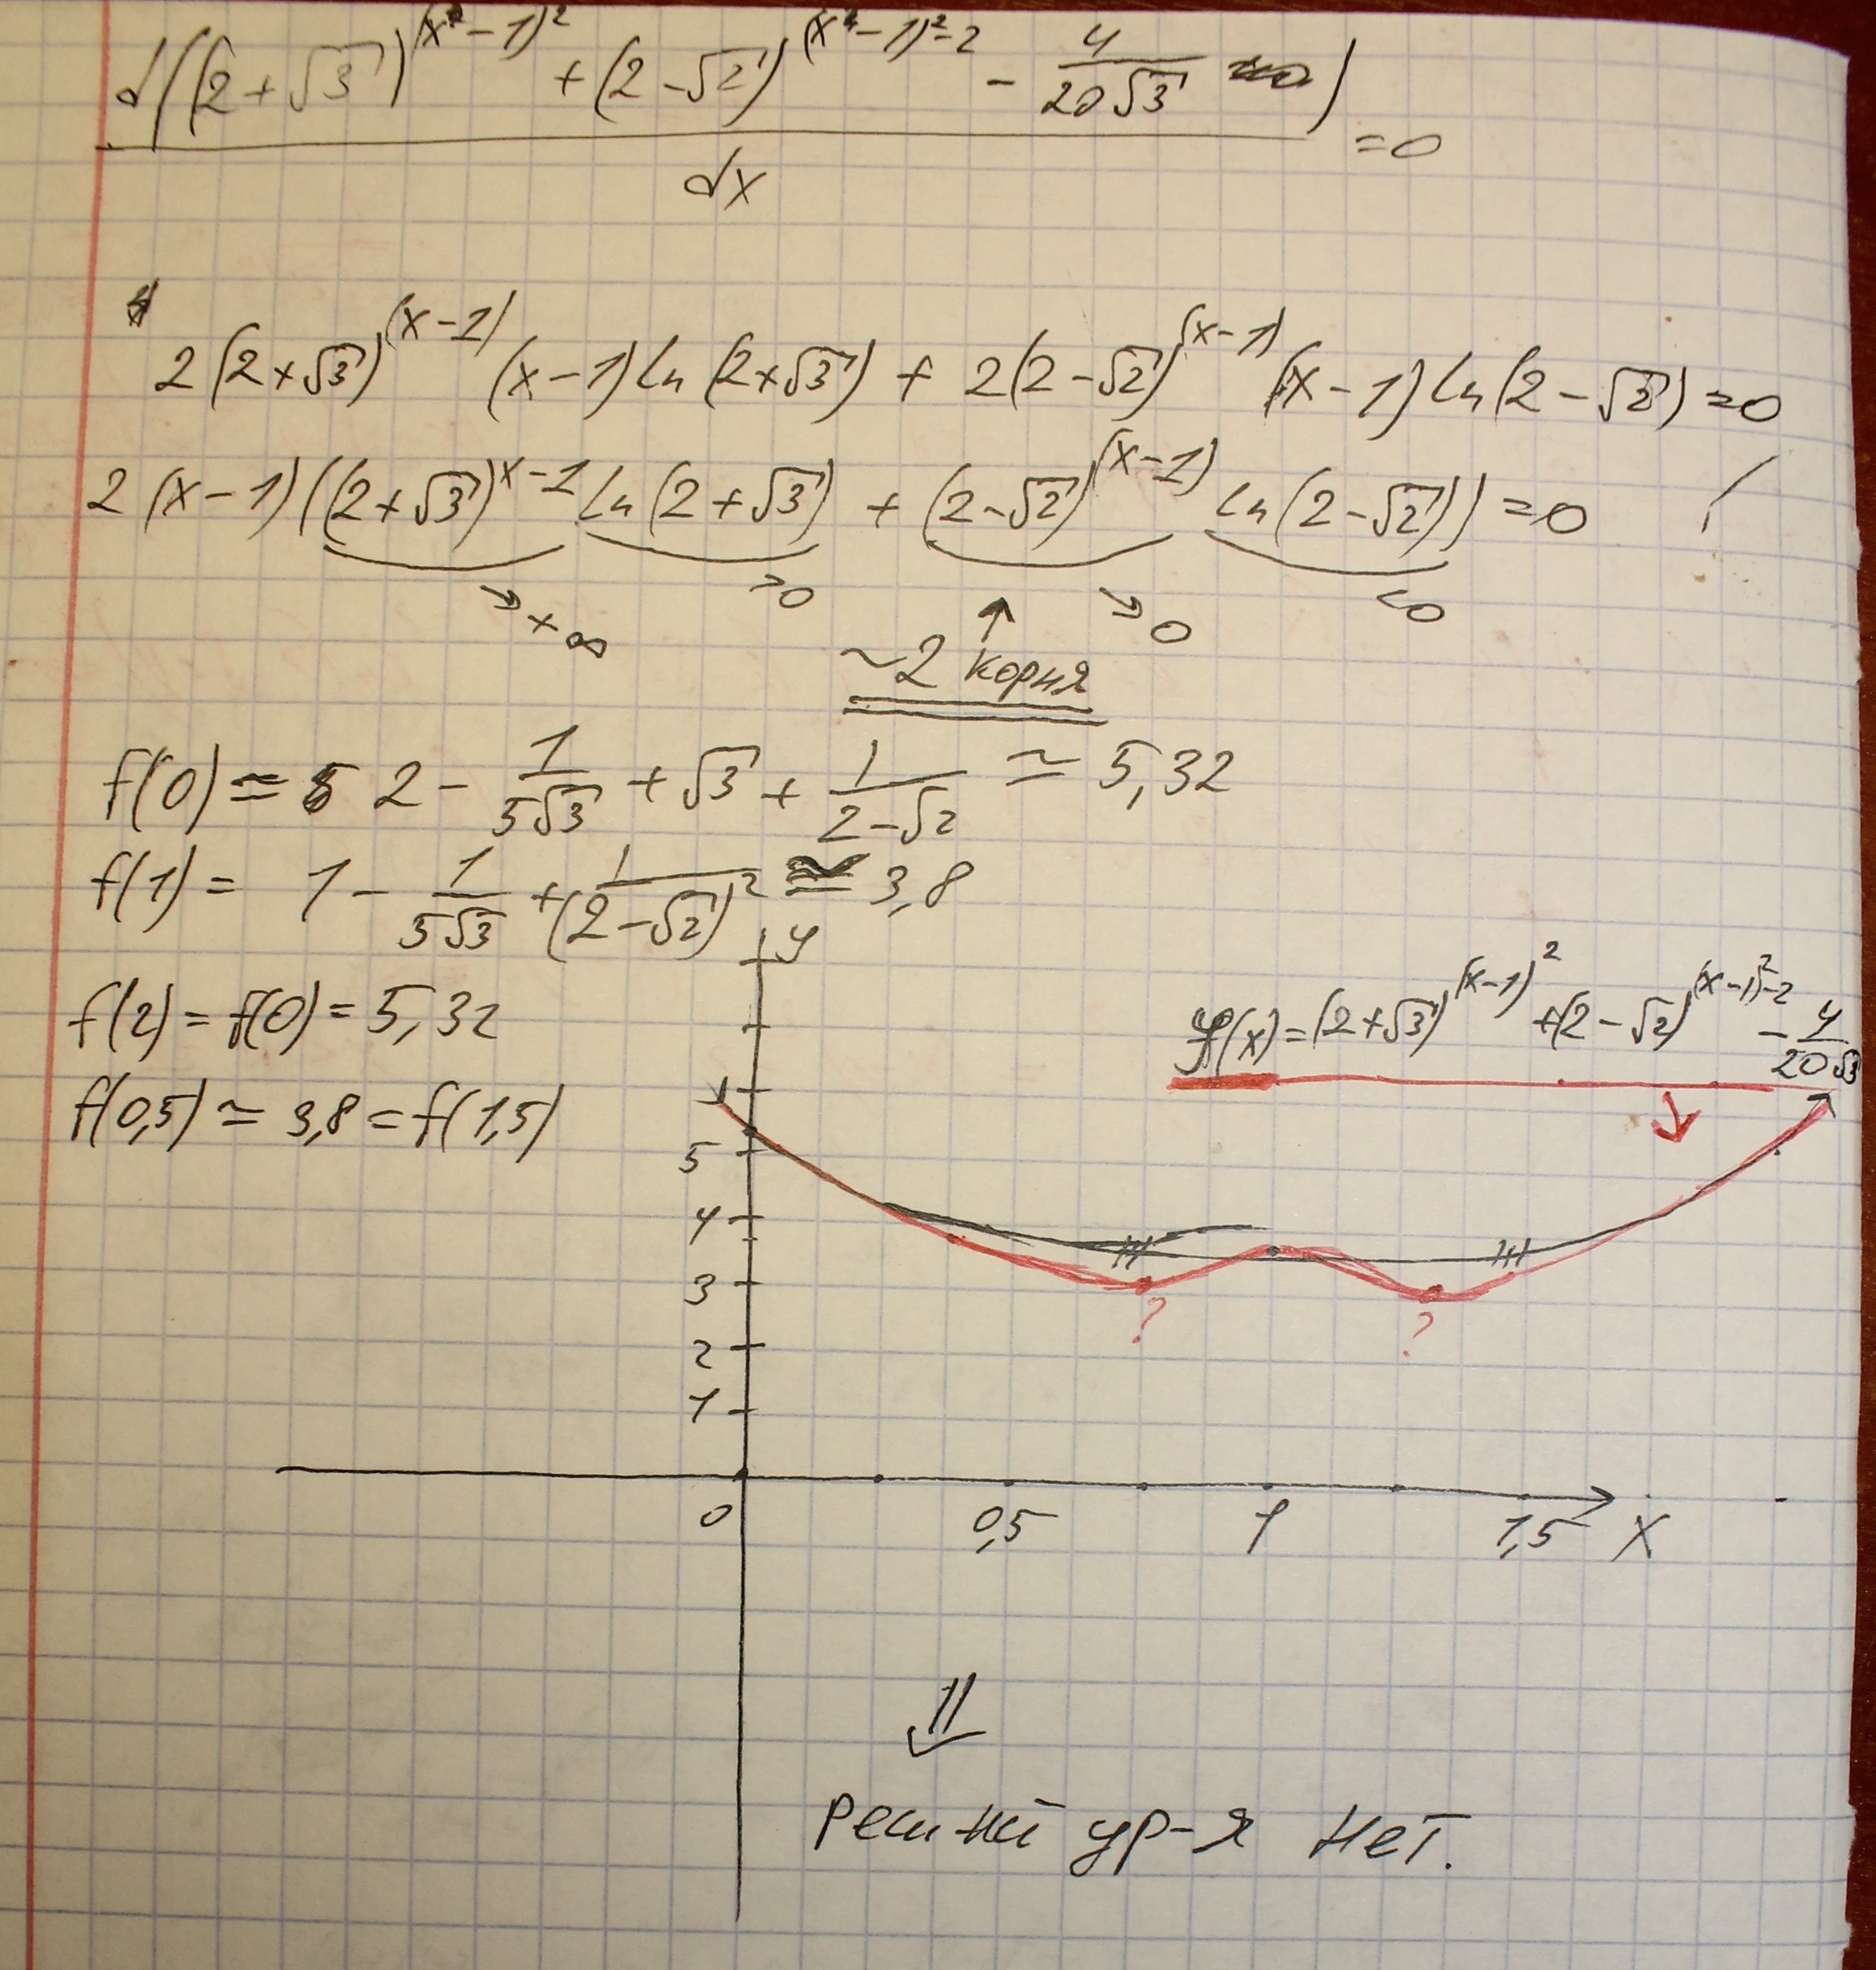 d((2+√3)^(x²-1)² + (2-√2)^(x²-1)²-2 - 4/(20√3)) / dx = 0
2(2+√3)^(x-1) (x-1) ln(2+√3) + 2(2-√2)^(x-1) (x-1) ln(2-√2) = 0
2(x-1)((2+√3)^x-1 ln(2+√3) + (2-√2)^(x-1) ln(2-√2)) = 0
→+∞ >0 ↑ →0 <0
~2 корня
f(0) ≃ 2 - 1/(5√3) + √3 + 1/(2-√2) ≃ 5,32
f(1) = 1 - 1/(5√3) + 1/(2-√2)² ≃ 3,8
f(2) = f(0) = 5,32
f(0,5) ≃ 3,8 = f(1,5)
y
f(x) = (2+√3)^(x-1)² + (2-√2)^(x-1)²-2 - 4/(20√3)
5
4
3
? ?
2
1
0 0,5 1 1,5 x
⇓
реш-ний ур-я нет.